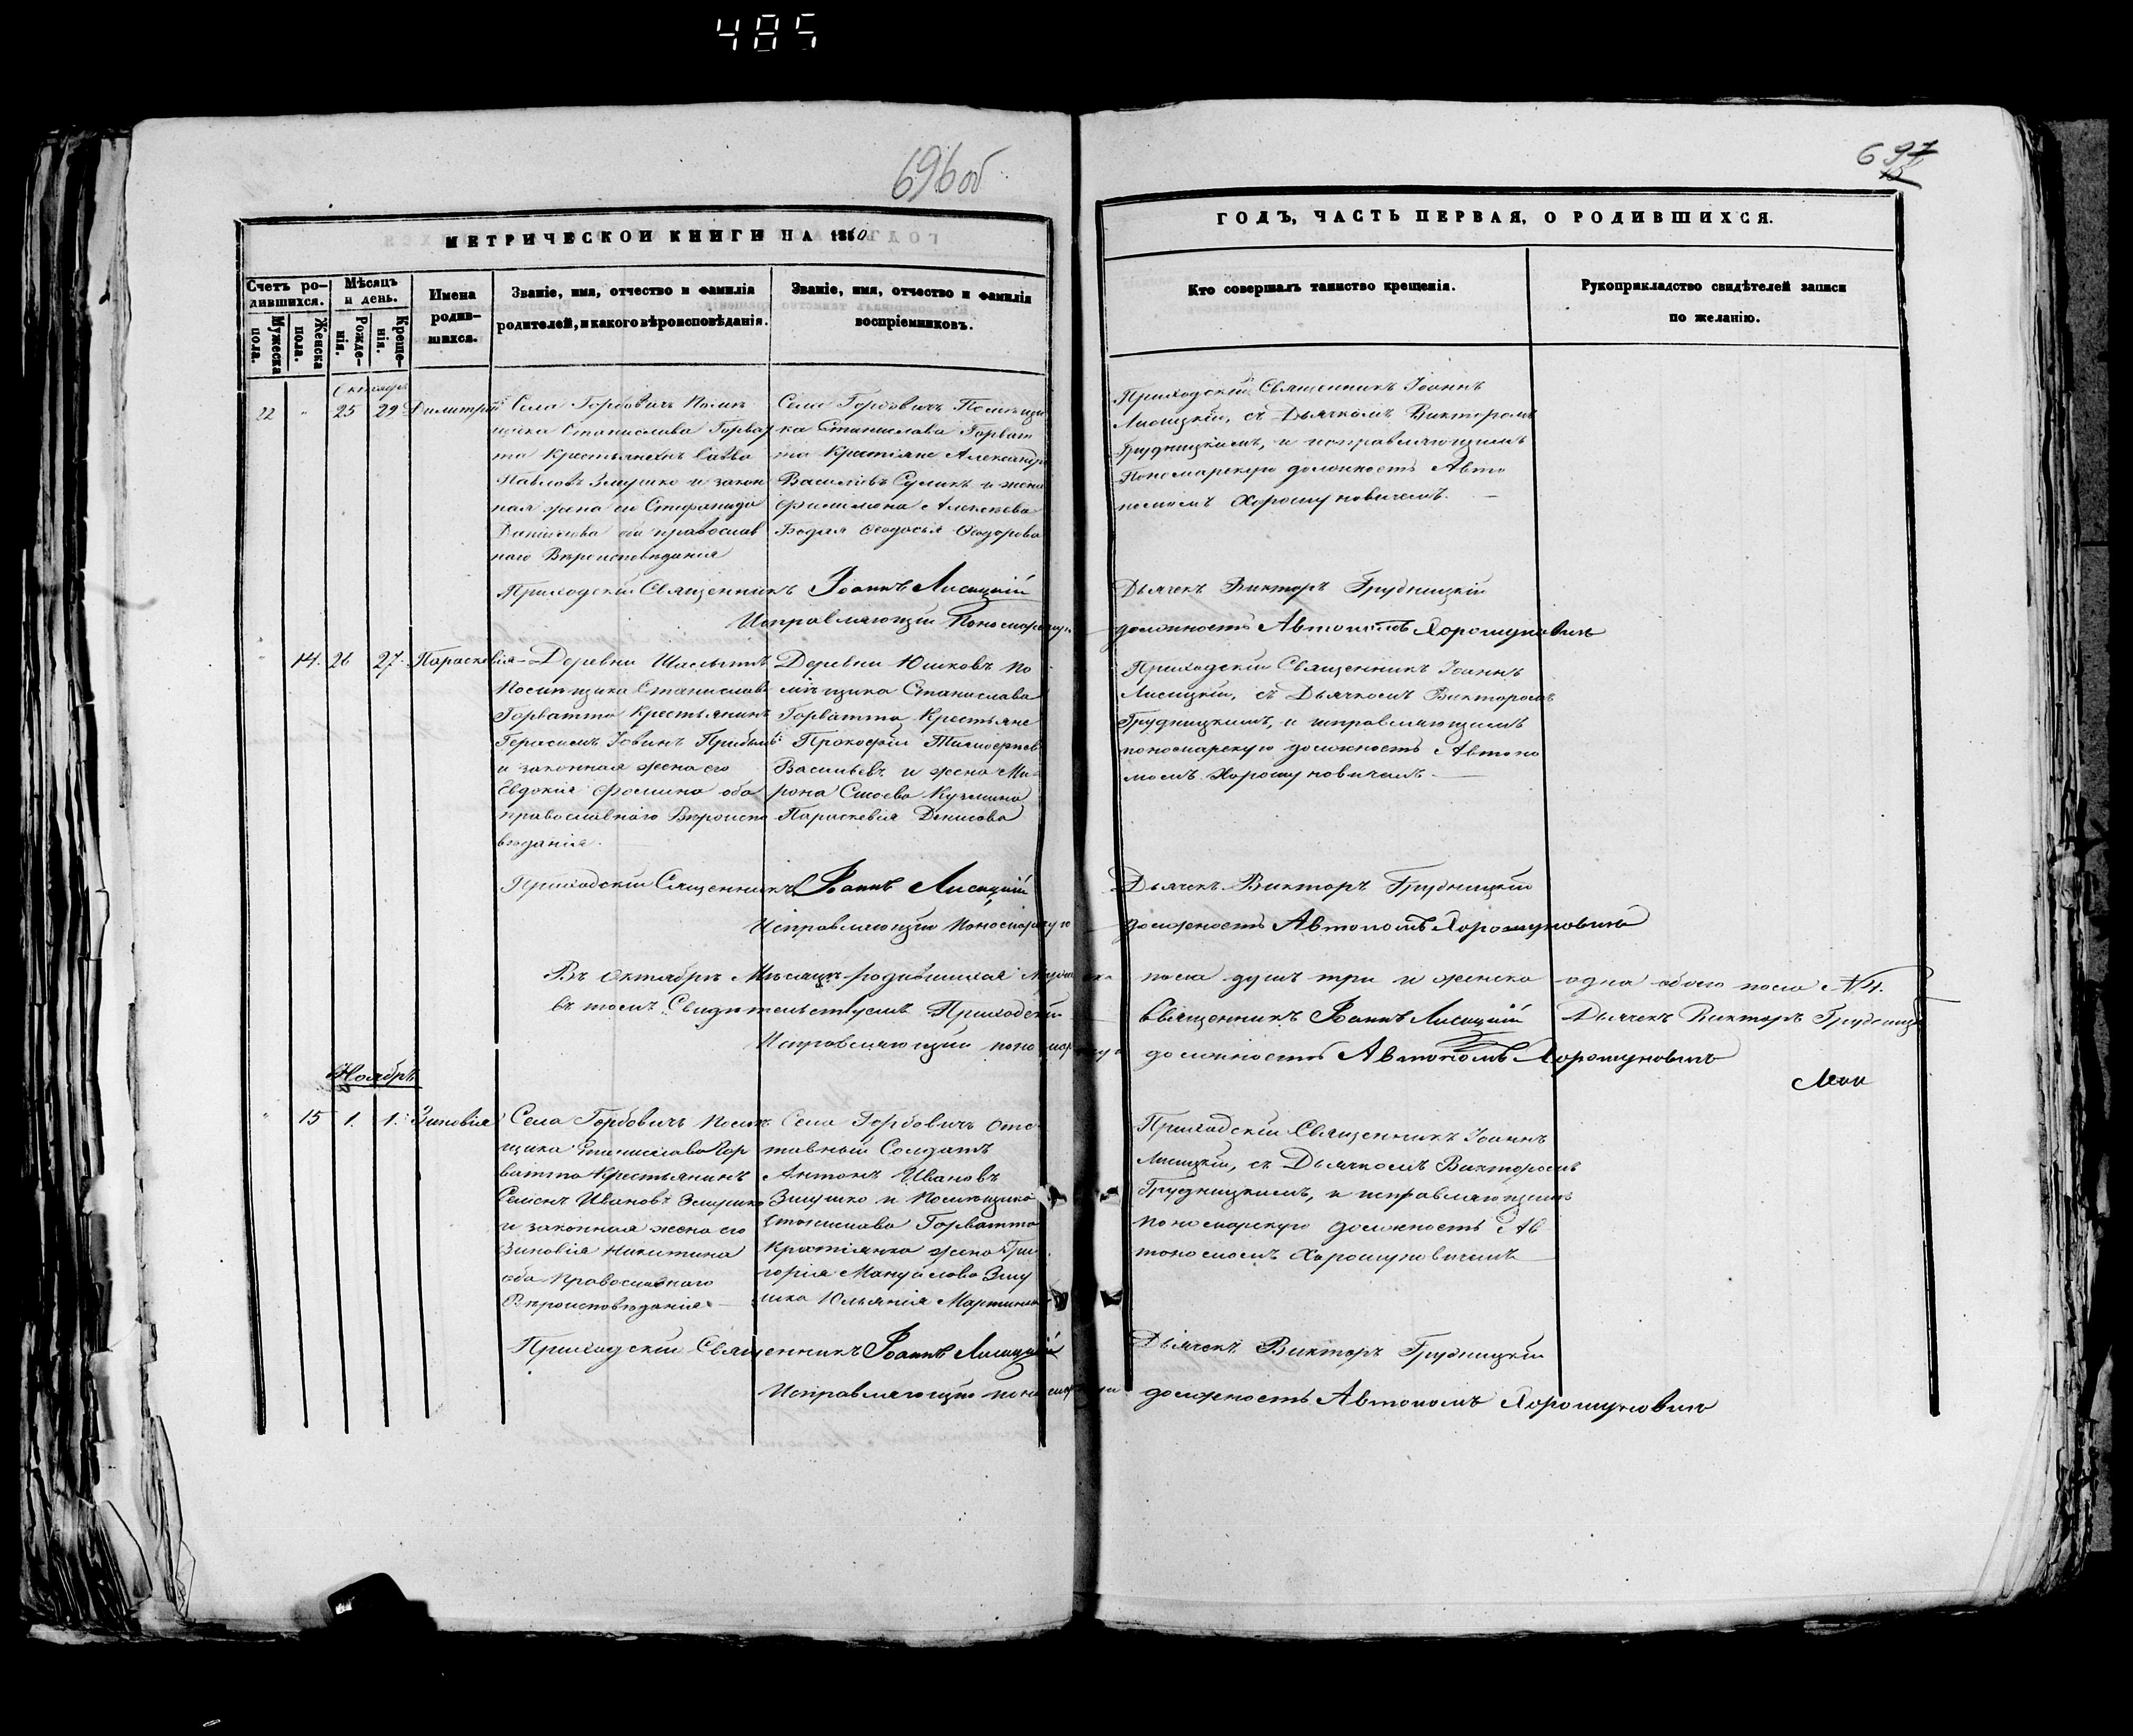 485
696об
697
МЕТРИЧЕСКОЙ КНИГИ НА 1860
ГОДЪ, ЧАСТЬ ПЕРВАЯ, О РОДИВШИХСЯ.
Счетъ ро-
дившихся.
Мужеска
пола.
Женска
пола.
Мѣсяцъ
и день.
Рожде-
нія.
Креще-
нія.
Имена
родив-
шихся.
Званіе, имя, отчество и фамилія
родителей, и какого вѣроисповѣданія.
Званіе, имя, отчество и фамилія
воспріемниковъ.
Кто совершалъ таинство крещенія.
Рукоприкладство свидѣтелей записи
по желанію.
Октябрь
22 " 25 29 Димитрій
Села Горбовичъ Помѣ
щика Станислава Горват
та Крестьянинъ Савва
Павловъ Змушко и закон
ная жена его Стефанида
Данилова оба православ
наго Вѣроисповѣданія
Села Горбовичъ Помѣщи
ка Станислава Горват
та Крестіяне Александръ
Васильевъ Сулимъ и жена
Филимона Алексѣева
Бодая Ѳеодосья Ѳеодорова
Приходскій Священникъ Іоаннъ
Лисицкій, съ Дьячкомъ Викторомъ
Грудницкимъ, и исправляющимъ
Пономарскую должность Авто
номомъ Хорошуновичемъ.
Приходскій Священникъ Іоаннъ Лисицкій
Дьячекъ Викторъ Грудницкій
Исправляющій Пономарскую должность Автономъ Хорошуновичъ
" 14. 26 27. Параскевія
Деревни
Помѣщика Станислава
Горватта Крестьянинъ
Герасимъ Іовинъ
и законная жена его
Евдокія Фомина оба
православнаго Вѣроиспо
вѣданія.
Деревни Юшковъ По
мѣщика Станислава
Горватта Крестьяне
Прокофій Тимоѳеевъ
Васильевъ и жена Ми
рона Кузмина
Параскевія Денисова
Приходскій Священникъ Іоаннъ
Лисицкій, съ Дьячкомъ Викторомъ
Грудницкимъ, и исправляющимъ
пономарскую должность Автоно
момъ Хорошуновичемъ
Приходскій Священникъ Іоаннъ Лисицкій
Дьячекъ Викторъ Грудницкій
Исправляющій Пономарскую должность Автономъ Хорошуновичъ
Въ Октябрѣ Мѣсяцѣ родившихся Мужеска пола душъ три и женска одна обоего пола №4.
въ томъ Свидѣтельствуемъ Приходскій Священникъ Іоаннъ Лисицкій Дьячекъ Викторъ
Исправляющій пономарскую должность Автономъ Хорошуновичъ
Ноябрь
" 15 1. 1. Зиновія
Села Горбовичъ Помѣ
щика Станислава Гор
ватта Крестьянинъ
Семенъ Ивановъ Змушко
и законная жена его
Зиновія Никитина
оба Православнаго
Вѣроисповѣданія
Села Горбовичъ Отс
тавный Солдатъ
Антонъ Ивановъ
Змушко и Помѣщика
Станислава Горватта
Крестіянка жена Гри
горія Мануйлова Зму
шка Юльянія Мартинова
Приходскій Священникъ Іоаннъ
Лисицкій, съ Дьячкомъ Викторомъ
Грудницкимъ, и исправляющимъ
пономарскую должность Ав
тономомъ Хорошуновичемъ
Приходскій Священникъ Іоаннъ Лисицкій
Дьячекъ Викторъ Грудницкій
Исправляющій пономарскую должность Автономъ Хорошуновичъ